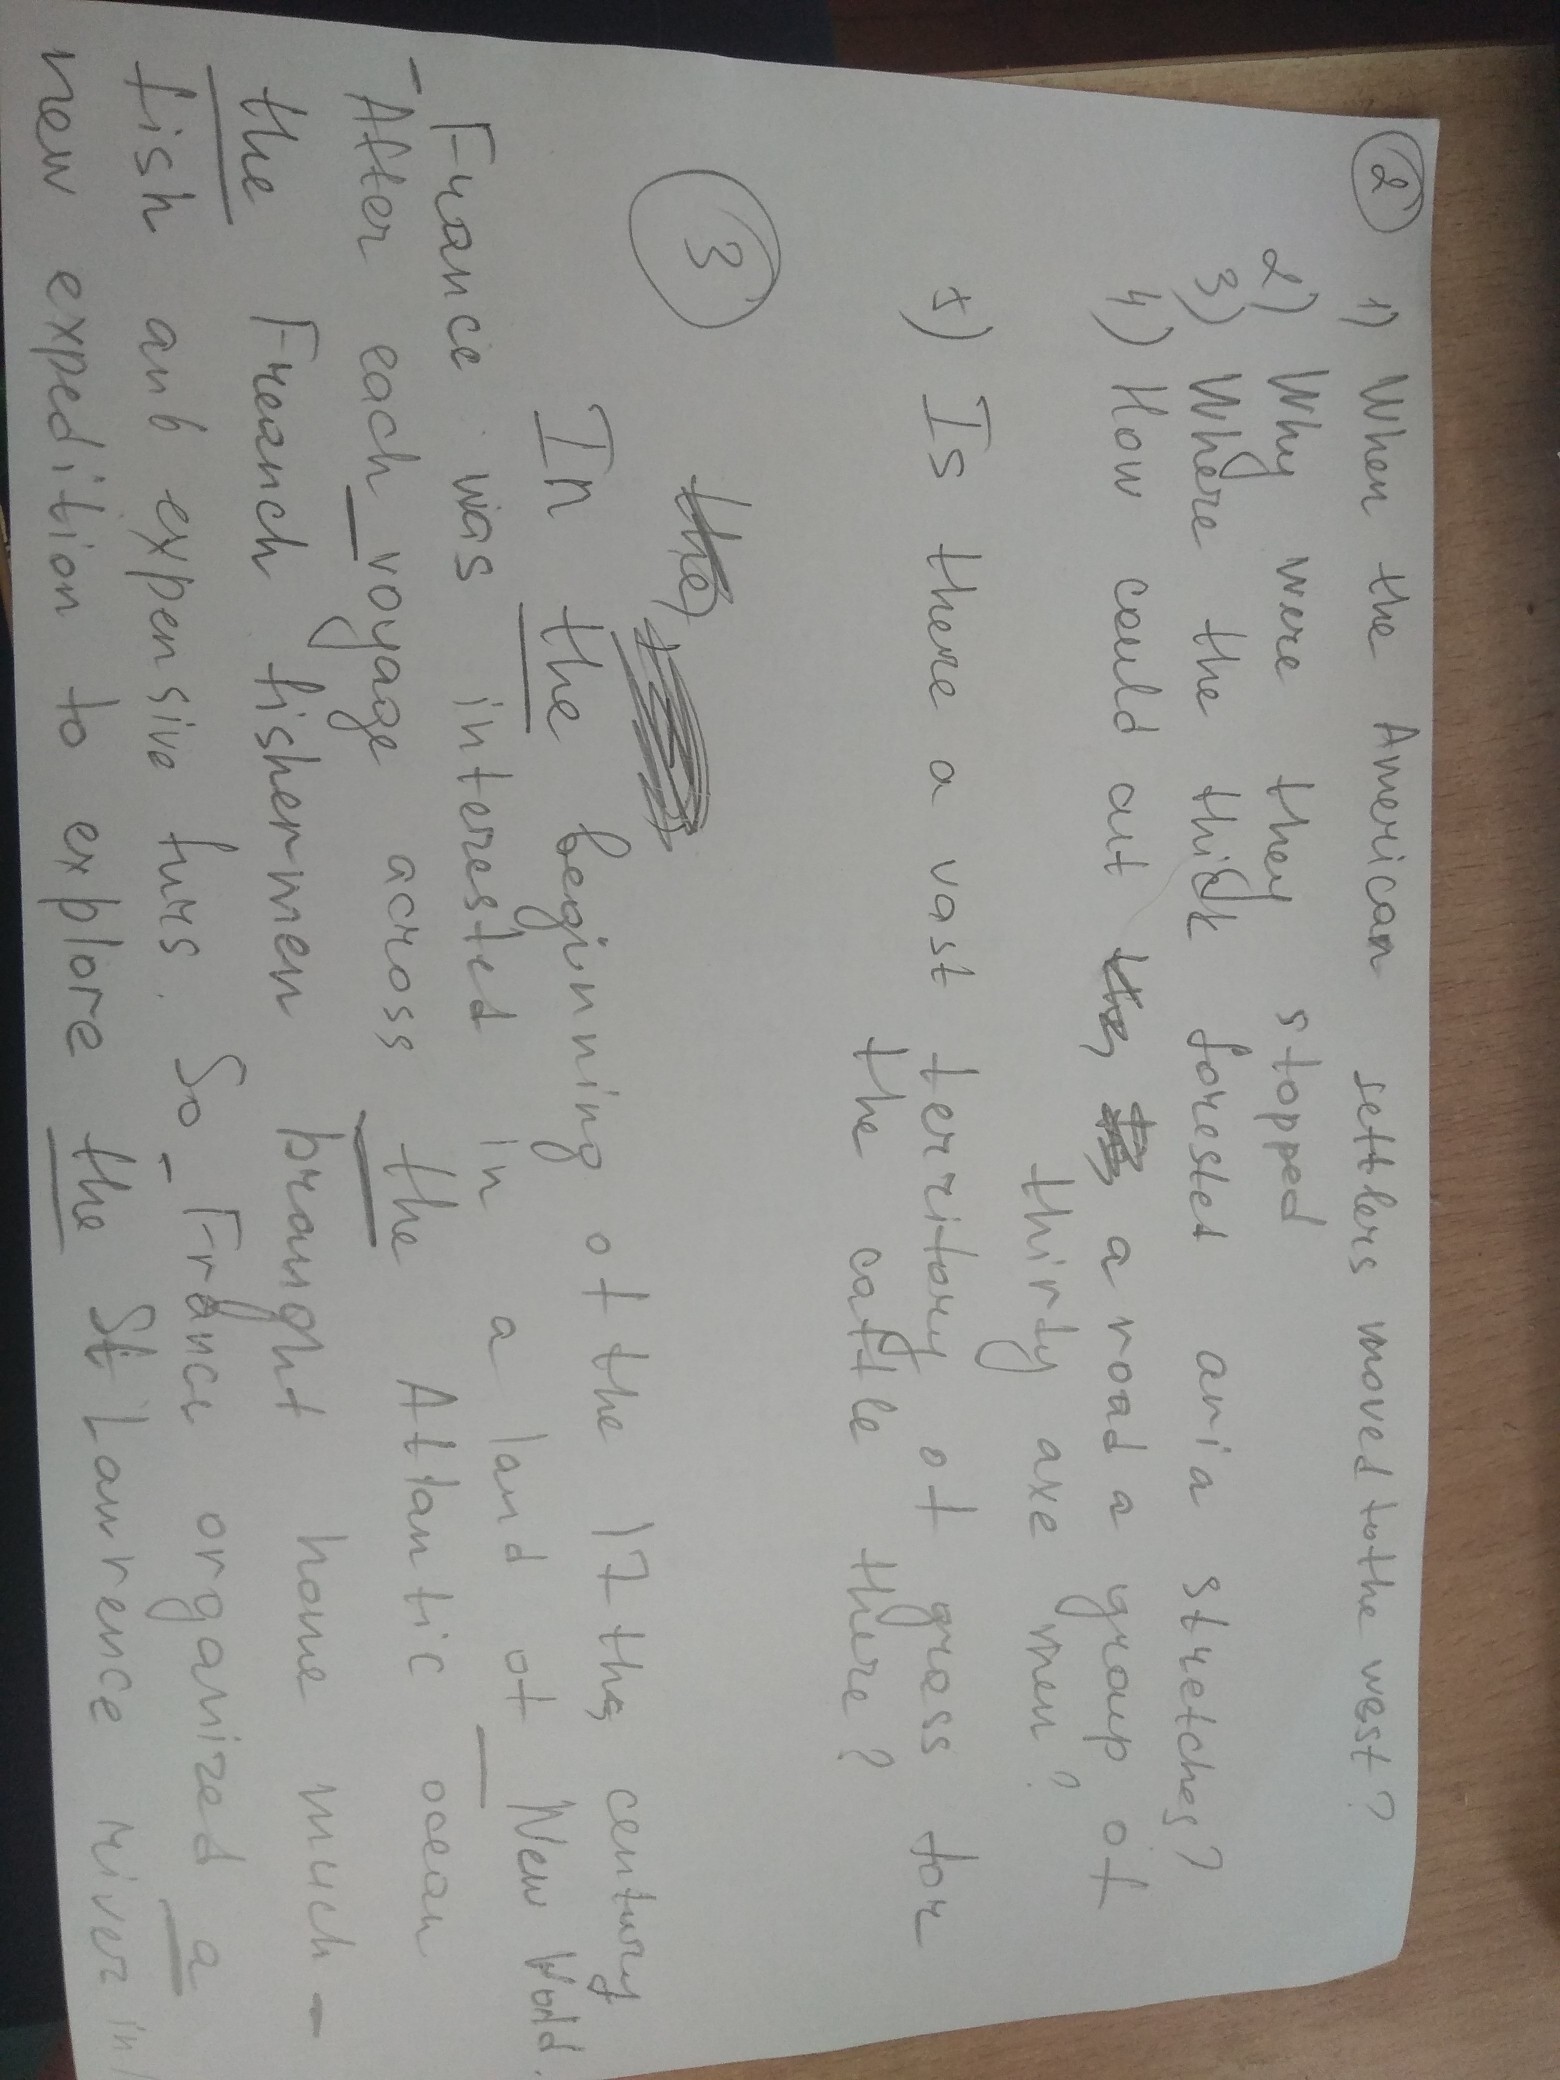 ② 1) When the American settlers moved to the west?
2) Why were they stopped
3) Where the thick forested aria stretches?
4) How could cut a road a group of
thirty axe men?
5) Is there a vast territory of grass for
the cattle there?
③ the
In the beginning of the 17 the century
- France was interested in a land of _ New World.
After each _ voyage across the Atlantic ocean
the French fishermen brought home much -
fish anb expensive furs. So - France organized a
new expedition to explore the St Lawrence river in